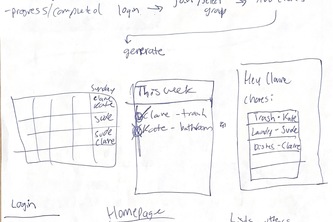 -progress/completed login → join/select group →
generate
Sunday
claire
kate
Sude
Sude
Claire
This week
Claire - trash
Kate - bathroom
Hey Claire
chores:
Trash - Kate
Laundry - Sude
Dishes - Claire
Login
Homepage